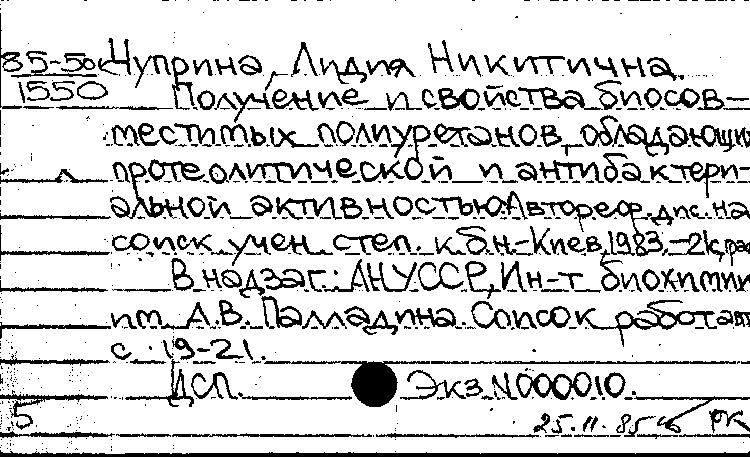 85-50к Чуприна, Лидия Никитична.
1550 Получение и свойства биосов-
местимых полиуретанов, обладающих
протеолитической и антибактери-
альной активностью: Автореф. дис. на
соиск. учен. степ. к.б.н.-Киев, 1983.-21с.,
В надзаг.: АН УССР, Ин-т биохимии
им. А.В. Палладина. Список работ авт.
с. 19-21.
ДСП. Экз. N 000010.
5 25.11.85 РК